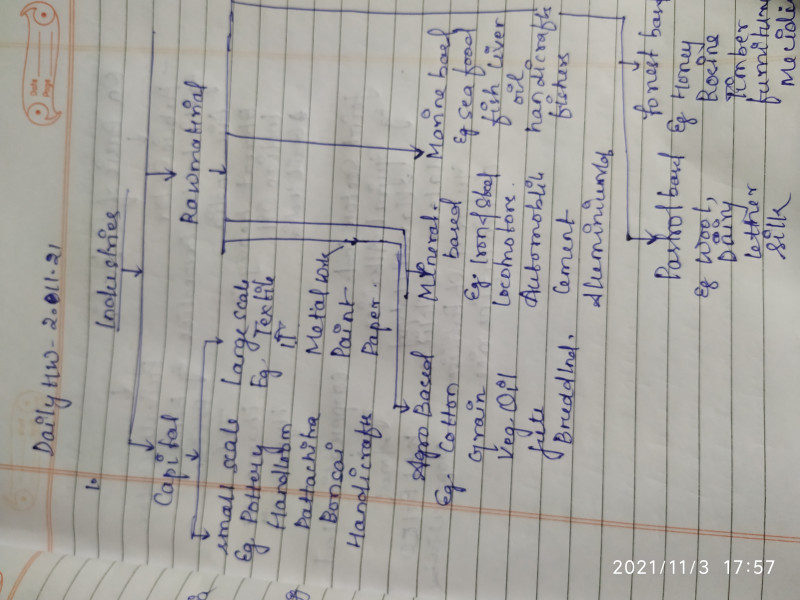 Daily HW - 2.011.21
1.
Industries
Capital
Rawmatrial
small scale
Eg. Pottery
Handloom
Pattachitra
Bonsai
Handicraft
Large scale
Eg. Textile
IT
Metal
Paint
Paper.
Agro Based
Eg. Cotton
Grain
Veg. Oil
Bredd Ind.
Mineral.
based
Eg. Iron & Steel
Locomotore.
Automobile
Cement
Aluminium
Marine based
Eg sea food
fish liver
oil
handicrafts
fishers
Pastrol based
Eg Wool,
Dairy
Lether
Silk
forest bas
Eg Honey
Rosine
Timber
furniture
Medici
Date
Page
2021/11/3 17:57